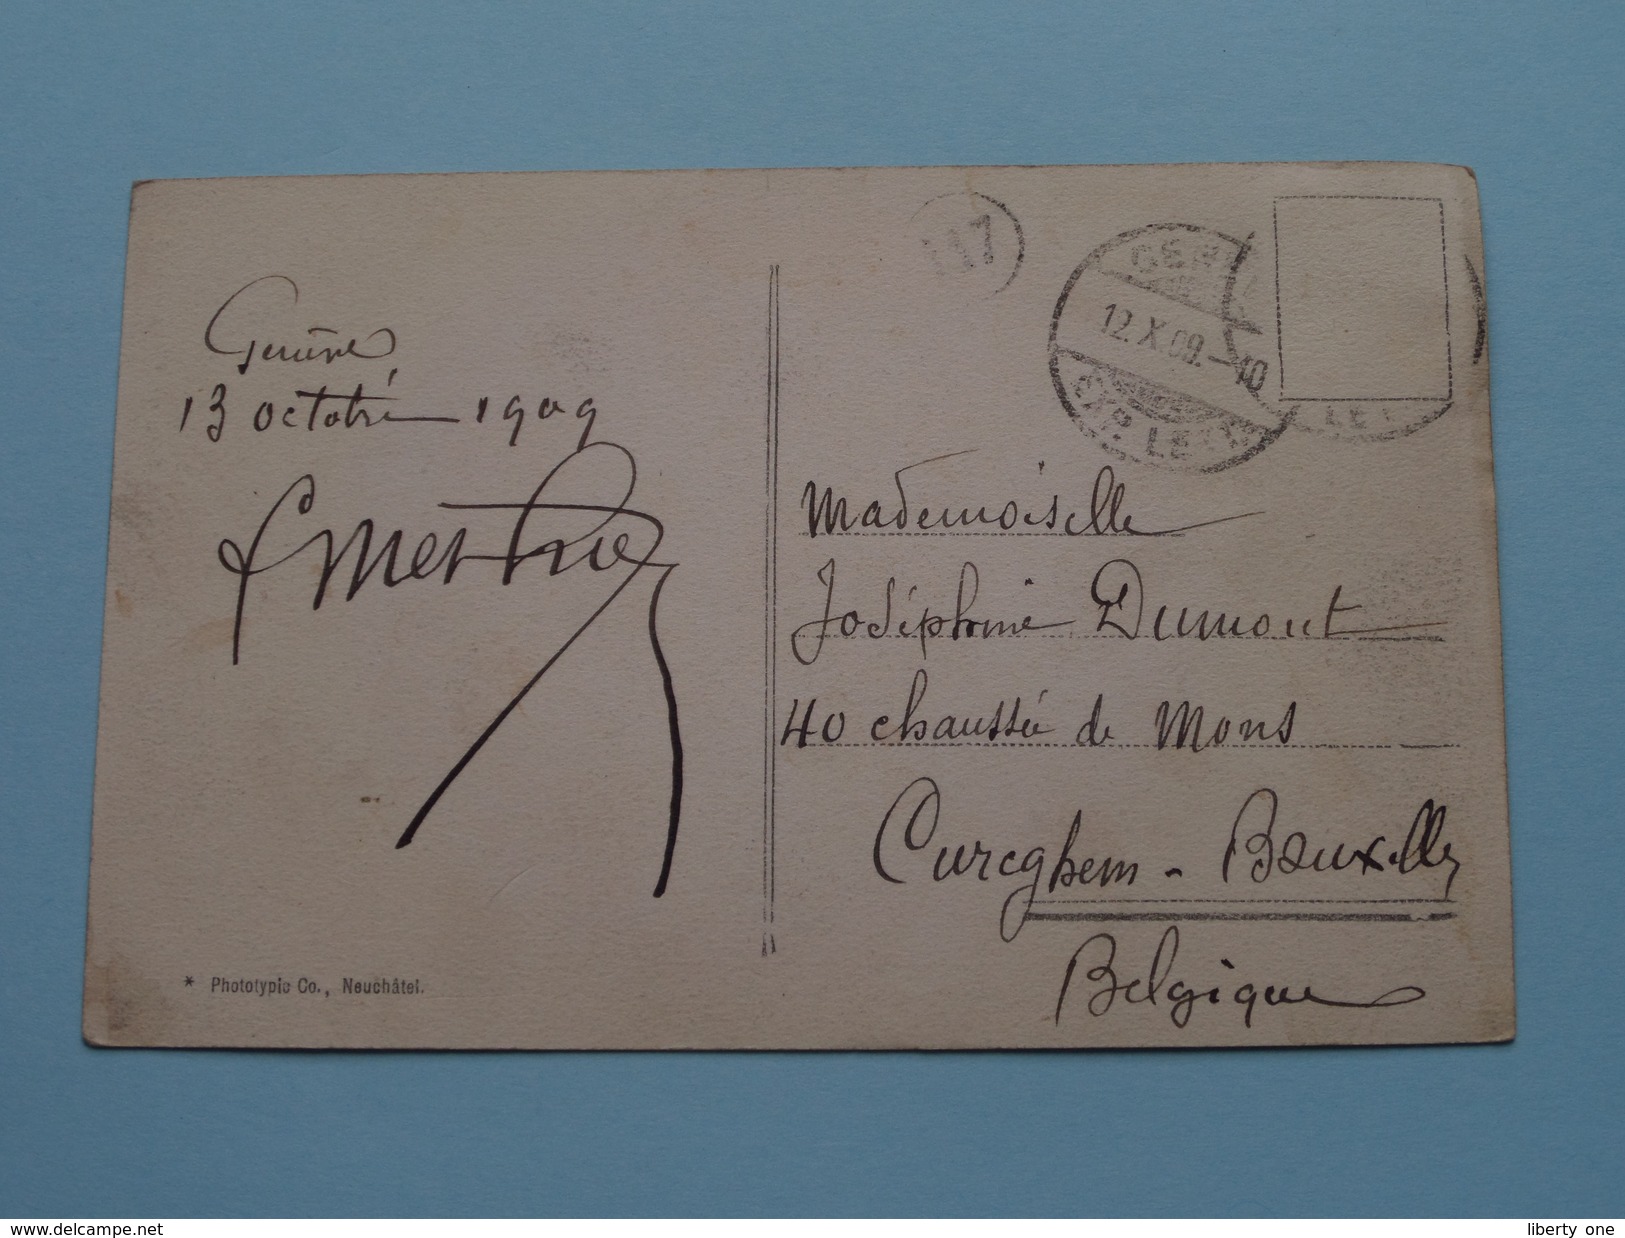 Genève
13 octobre 1909
* Phototypie Co., Neuchâtel.
117
12.X.09.–10
EXP. LETT.
Mademoiselle
Joséphine Dumont
40 chaussée de Mons
Cureghem - Bruxelles
Belgique
delcampe.net
liberty one